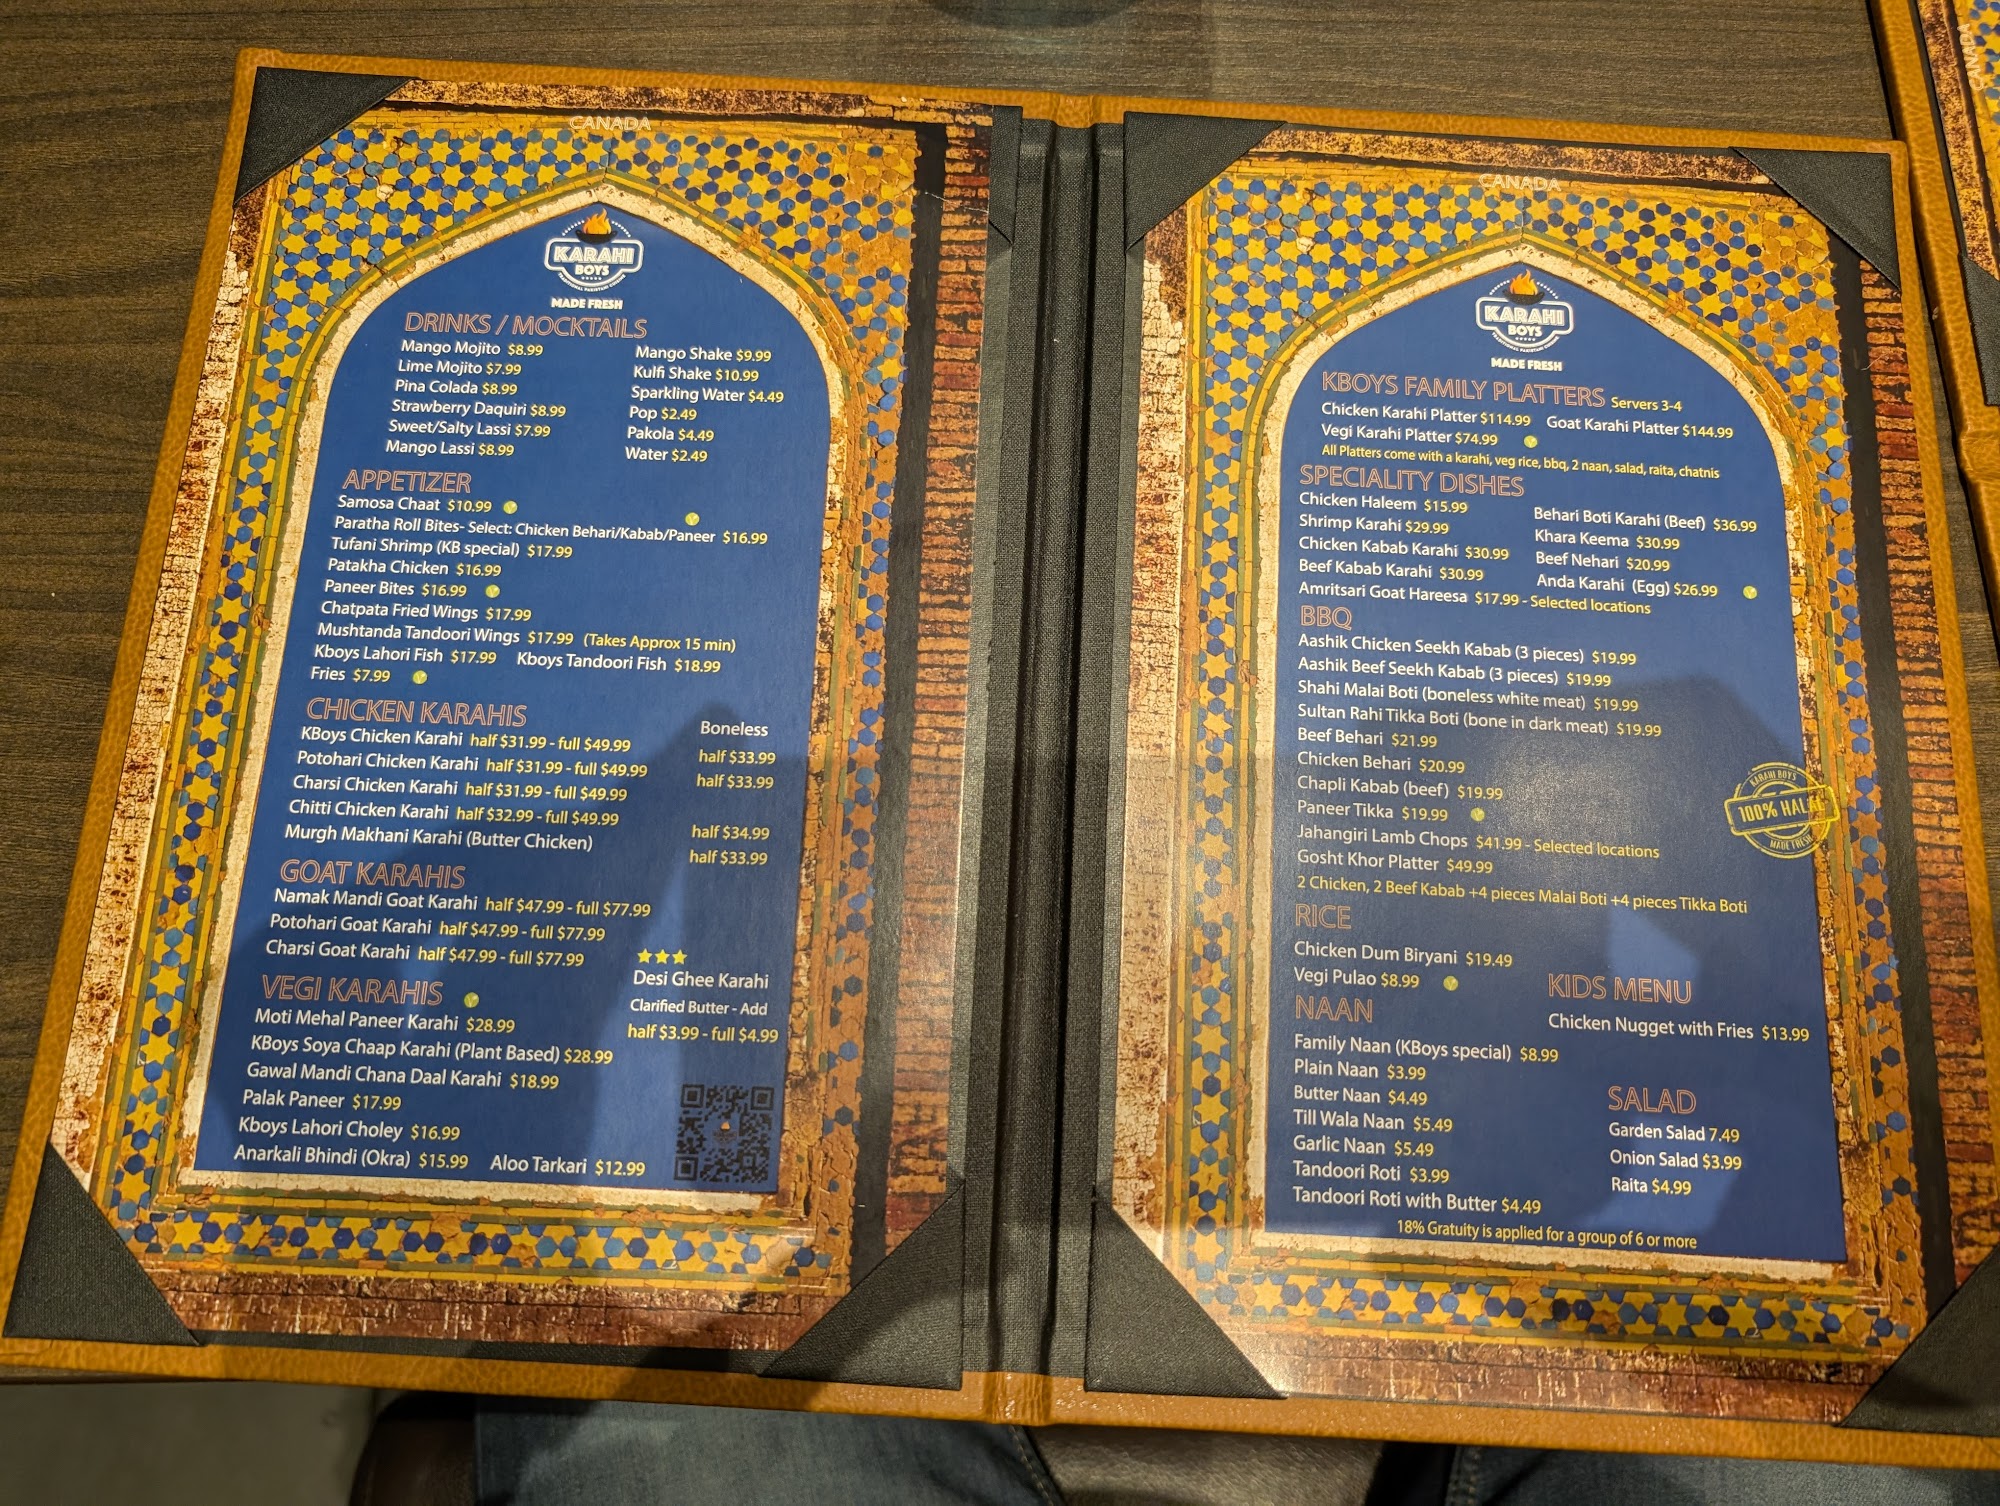 CANADA
KARAHI
BOYS
TRADITIONAL PAKISTANI CUISINE
MADE FRESH
DRINKS / MOCKTAILS
Mango Mojito $8.99
Lime Mojito $7.99
Pina Colada $8.99
Strawberry Daquiri $8.99
Sweet/Salty Lassi $7.99
Mango Lassi $8.99
Mango Shake $9.99
Kulfi Shake $10.99
Sparkling Water $4.49
Pop $2.49
Pakola $4.49
Water $2.49
APPETIZER
Samosa Chaat $10.99
Paratha Roll Bites- Select: Chicken Behari/Kabab/Paneer $16.99
Tufani Shrimp (KB special) $17.99
Patakha Chicken $16.99
Paneer Bites $16.99
Chatpata Fried Wings $17.99
Mushtanda Tandoori Wings $17.99 (Takes Approx 15 min)
Kboys Lahori Fish $17.99 Kboys Tandoori Fish $18.99
Fries $7.99
CHICKEN KARAHIS
Boneless
KBoys Chicken Karahi half $31.99 - full $49.99 half $33.99
Potohari Chicken Karahi half $31.99 - full $49.99 half $33.99
Charsi Chicken Karahi half $31.99 - full $49.99
Chitti Chicken Karahi half $32.99 - full $49.99 half $34.99
Murgh Makhani Karahi (Butter Chicken) half $33.99
GOAT KARAHIS
Namak Mandi Goat Karahi half $47.99 - full $77.99
Potohari Goat Karahi half $47.99 - full $77.99
Charsi Goat Karahi half $47.99 - full $77.99
Desi Ghee Karahi
Clarified Butter - Add
half $3.99 - full $4.99
VEGI KARAHIS
Moti Mehal Paneer Karahi $28.99
KBoys Soya Chaap Karahi (Plant Based) $28.99
Gawal Mandi Chana Daal Karahi $18.99
Palak Paneer $17.99
Kboys Lahori Choley $16.99
Anarkali Bhindi (Okra) $15.99 Aloo Tarkari $12.99
CANADA
KARAHI
BOYS
TRADITIONAL PAKISTANI CUISINE
MADE FRESH
KBOYS FAMILY PLATTERS Servers 3-4
Chicken Karahi Platter $114.99 Goat Karahi Platter $144.99
Vegi Karahi Platter $74.99
All Platters come with a karahi, veg rice, bbq, 2 naan, salad, raita, chatnis
SPECIALITY DISHES
Chicken Haleem $15.99
Shrimp Karahi $29.99
Chicken Kabab Karahi $30.99
Beef Kabab Karahi $30.99
Behari Boti Karahi (Beef) $36.99
Khara Keema $30.99
Beef Nehari $20.99
Anda Karahi (Egg) $26.99
Amritsari Goat Hareesa $17.99 - Selected locations
BBQ
Aashik Chicken Seekh Kabab (3 pieces) $19.99
Aashik Beef Seekh Kabab (3 pieces) $19.99
Shahi Malai Boti (boneless white meat) $19.99
Sultan Rahi Tikka Boti (bone in dark meat) $19.99
Beef Behari $21.99
Chicken Behari $20.99
Chapli Kabab (beef) $19.99
Paneer Tikka $19.99
Jahangiri Lamb Chops $41.99 - Selected locations
Gosht Khor Platter $49.99
2 Chicken, 2 Beef Kabab +4 pieces Malai Boti +4 pieces Tikka Boti
KARAHI BOYS
100% HALAL
MADE FRESH
RICE
Chicken Dum Biryani $19.49
Vegi Pulao $8.99
KIDS MENU
Chicken Nugget with Fries $13.99
NAAN
Family Naan (KBoys special) $8.99
Plain Naan $3.99
Butter Naan $4.49
Till Wala Naan $5.49
Garlic Naan $5.49
Tandoori Roti $3.99
Tandoori Roti with Butter $4.49
SALAD
Garden Salad 7.49
Onion Salad $3.99
Raita $4.99
18% Gratuity is applied for a group of 6 or more
CANADA